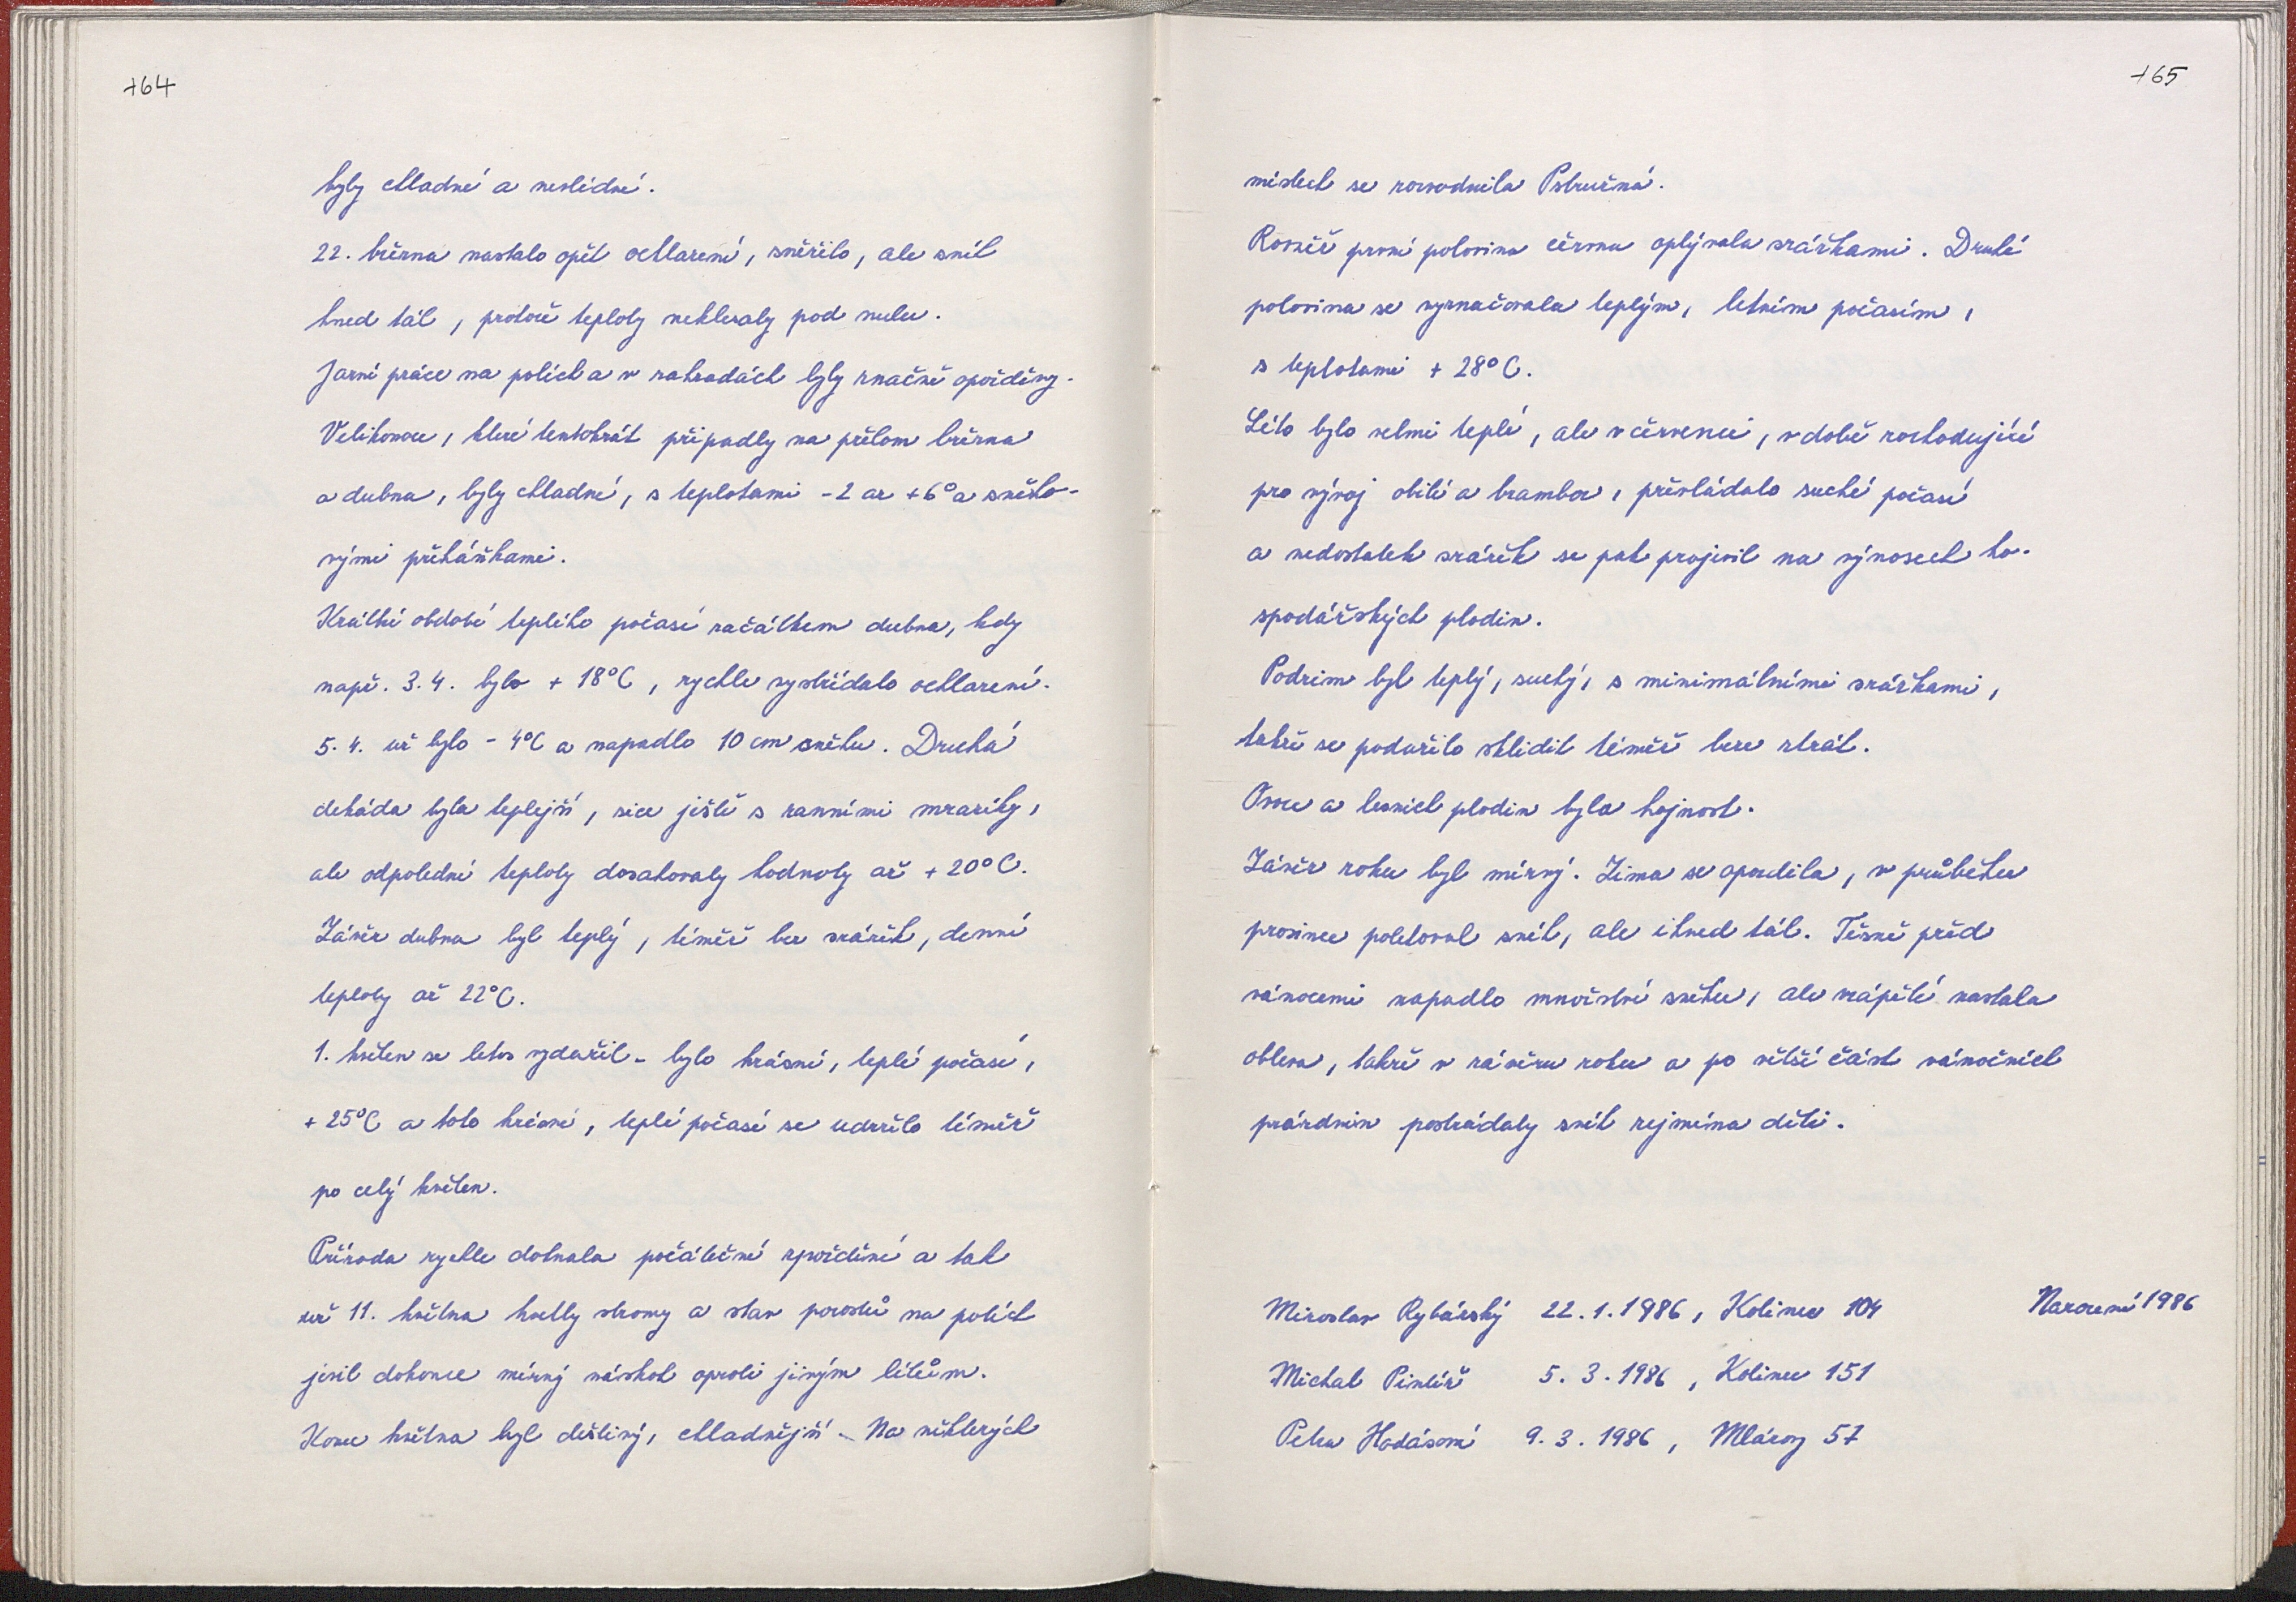 164
byly chladné a nevlídné.
22. března nastalo opět ochlazení, sněžilo, ale sníh
hned tál, protože teploty neklesaly pod nulu.
Jarní práce na polích a v zahradách byly značně opožděny.
Velikonoce, které tentokrát připadly na přelom března
a dubna, byly chladné, s teplotami -2 až +6° a sněho-
vými přeháňkami.
Krátké období teplého počasí začátkem dubna, kdy
např. 3. 4. bylo + 18°C, rychle vystřídalo ochlazení.
5. 4. už bylo - 4°C a napadlo 10 cm sněhu. Druhá
dekáda byla teplejší, sice ještě s ranními mrazíky,
ale odpolední teploty dosahovaly hodnoty až + 20°C.
Závěr dubna byl teplý, téměř bez srážek, denní
teploty až 22°C.
1. květen se letos vydařil - bylo krásné, teplé počasí,
+ 25°C a toto krásné, teplé počasí se udrželo téměř
po celý květen.
Příroda rychle dohnala počáteční zpoždění a tak
už 11. května kvetly stromy a stav porostů na polích
jevil dokonce mírný náskok oproti jiným létům.
Konec května byl deštivý, chladnější. Na některých
165
místech se rozvodnila Pstružná.
Rovněž první polovina června oplývala srážkami. Druhá
polovina se vyznačovala teplým, letním počasím,
s teplotami + 28°C.
Léto bylo velmi teplé, ale v červenci, v době rozhodující
pro vývoj obilí a brambor, převládalo suché počasí
a nedostatek srážek se pak projevil na výnosech ho-
spodářských plodin.
Podzim byl teplý, suchý, s minimálními srážkami,
takže se podařilo sklidit téměř beze ztrát.
Ovoce a lesních plodin byla hojnost.
Závěr roku byl mírný. Zima se opozdila, v průběhu
prosince poletoval sníh, ale ihned tál. Těsně před
vánocemi napadlo množství sněhu, ale vzápětí nastala
obleva, takže v závěru roku a po větší část vánočních
prázdnin postrádaly sníh zejména děti.
Miroslav Rybárský 22. 1. 1986, Kolinec 104
Narození 1986
Michal Pintíř 5. 3. 1986, Kolinec 151
Petra Hodásová 9. 3. 1986, Mlázovy 57